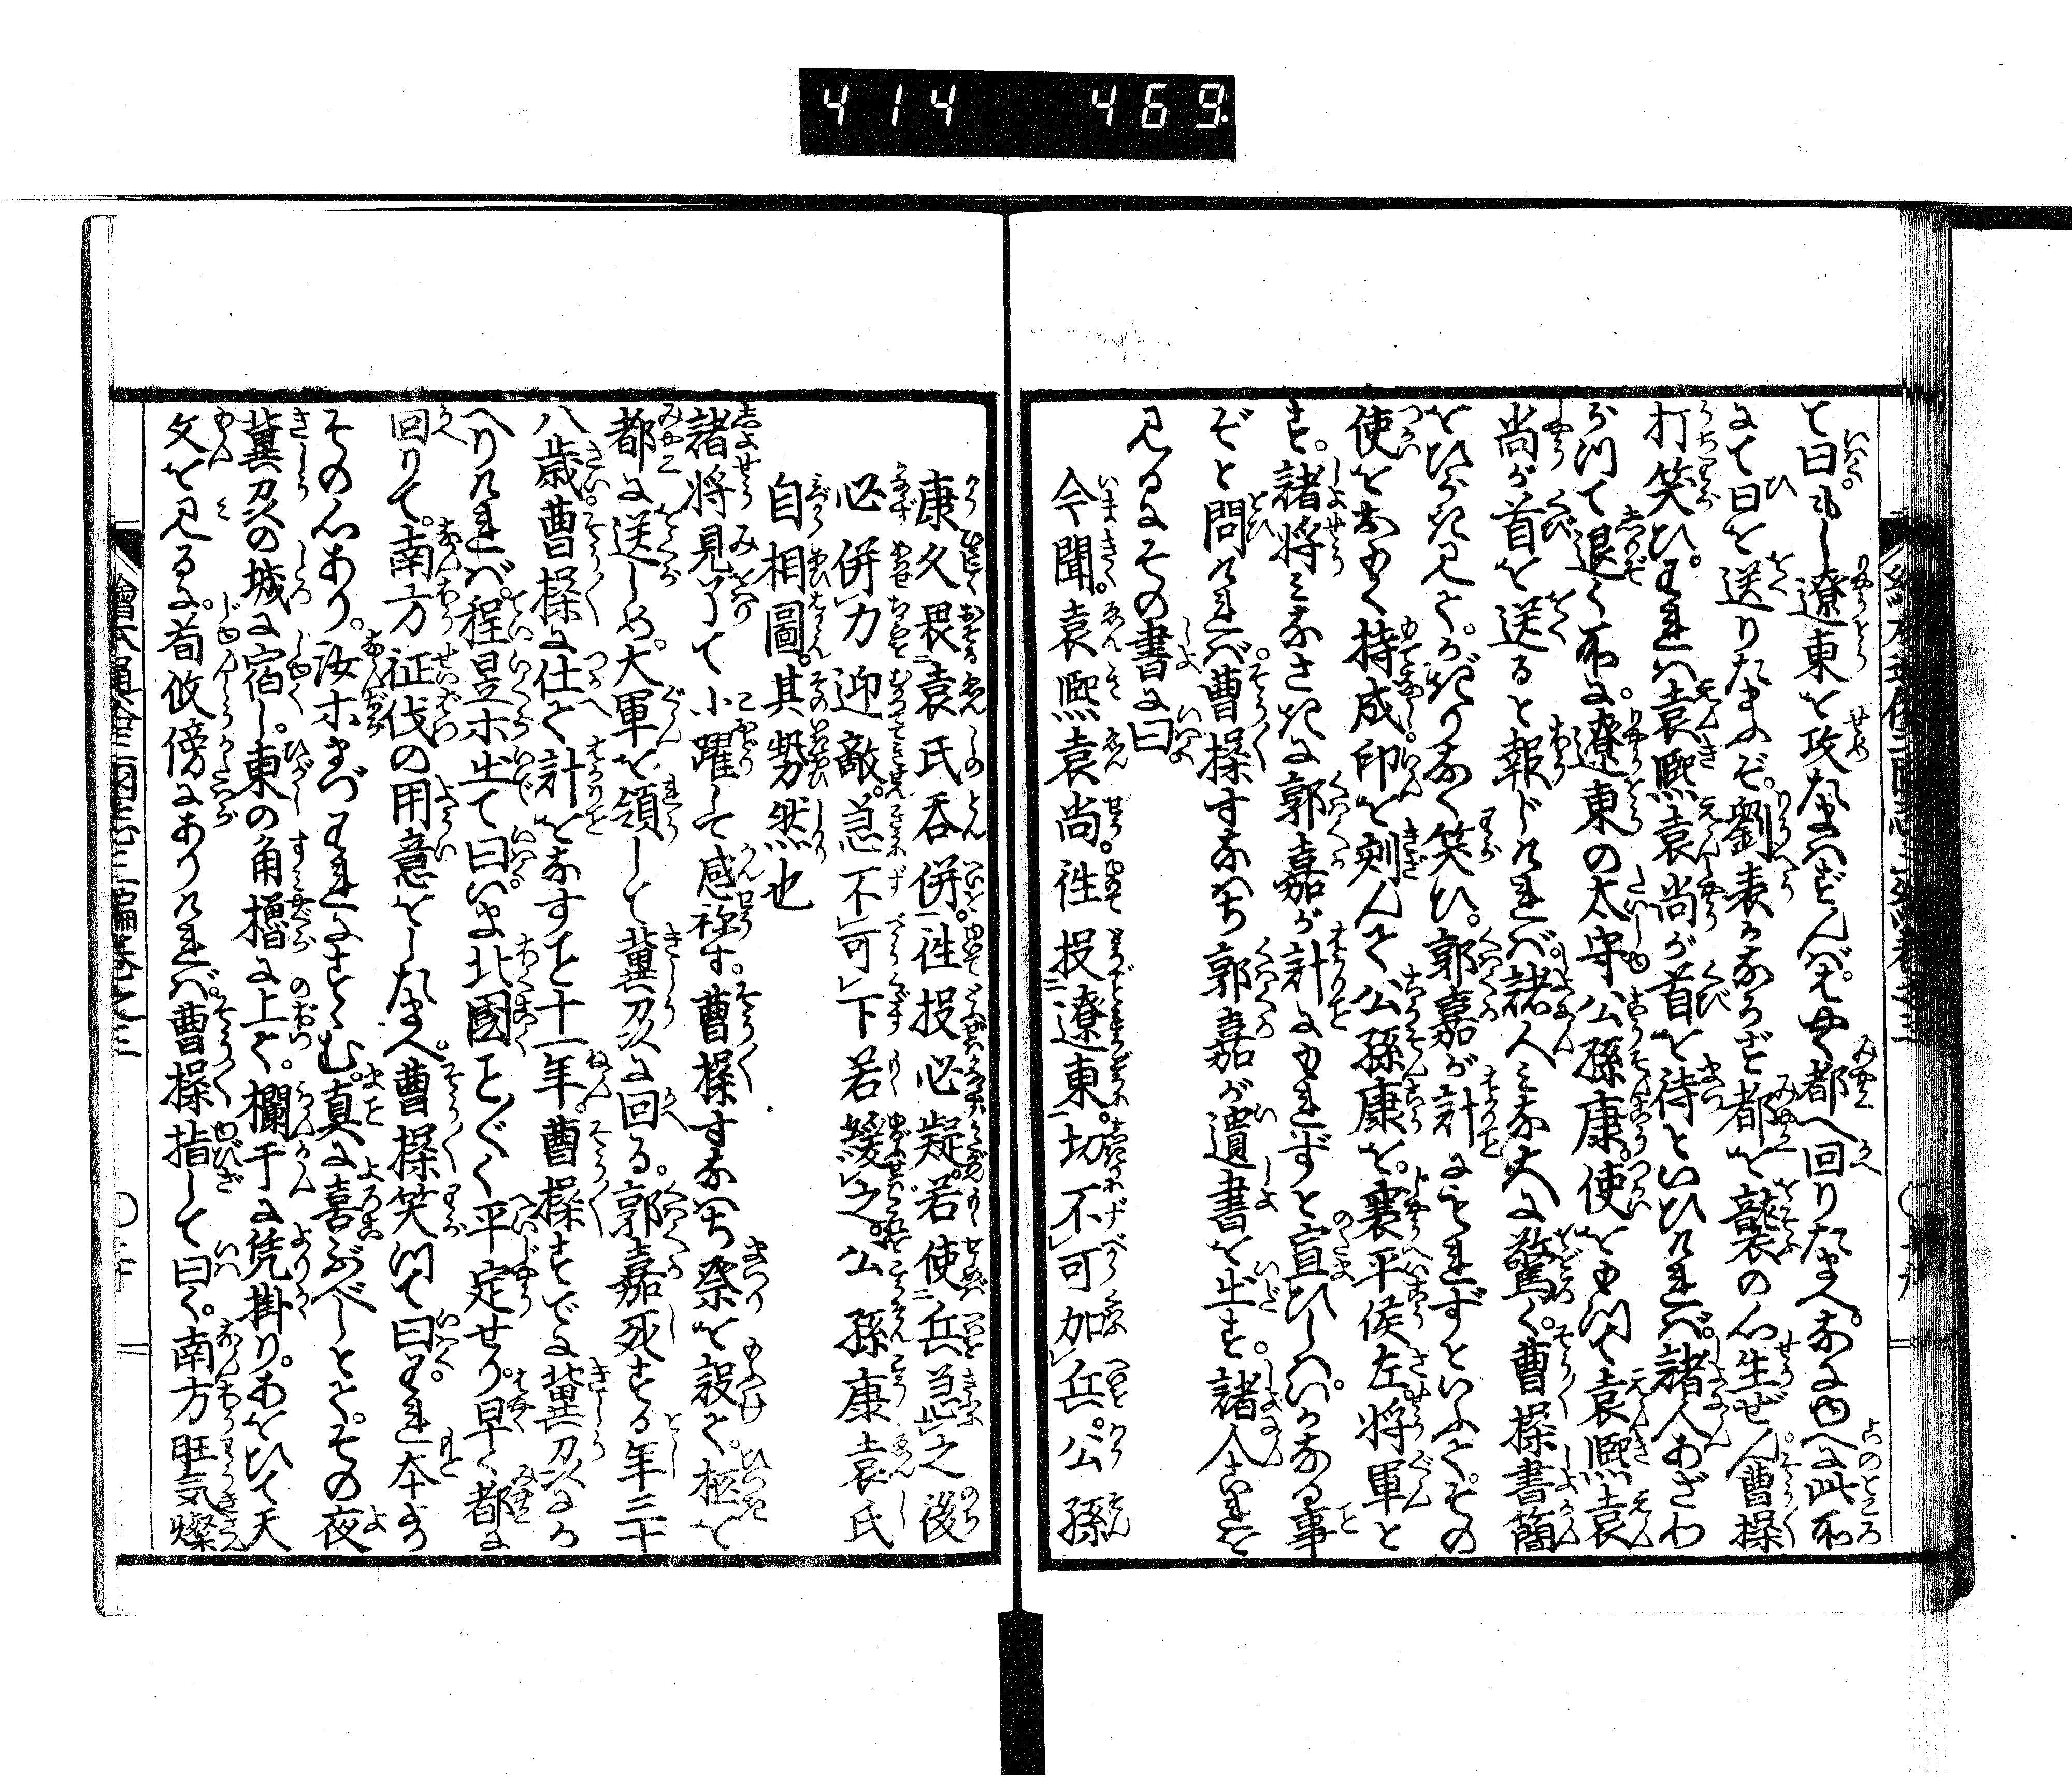 414 469
て曰もし遼東を攻たまハずんバはや都へ回りたまへなまめへに此所
にて日を送りたまふぞ。劉表かならず都を襲の心生ぜん曹操
打笑ひ。われハ袁熙袁尚が首を待といひけれバ。諸人あざわ
らつて退く所に。遼東の太守公孫康。使をもつて袁熙袁
尚が首を送ると報じけれバ。諸人ミな大に驚く。曹操書簡
をひらき見て。かぎりなく笑ひ。郭嘉が計にもれずといふて。その
使をあつく持成印を刻んで公孫康を。襄平侯左将軍と
す。諸将ミなさきに郭嘉が計にもれずと宣ひしハいかなる事
ぞと問けれバ曹操すなハち郭嘉が遺書を出す。諸人これを
見るにその書に曰
今聞。袁熙袁尚。徃投二遼東一。切不レ可加レ兵。公孫
康久畏二袁氏呑併一。徃投必疑。若使二兵急一レ之後
必併レ力迎敵。急不レ可レ下若緩レ之。公孫康袁氏
自相圖。其勢然也
諸将見了て小躍して感称す。曹操すなハち祭を設て。柩を
都に送しめ。大軍を領して冀刕に回る。郭嘉死する年三十
八歳曹操に仕て計をなすこと十一年。曹操すでに冀刕にか
へりけれバ。程昱ホ出て曰いま北國ことごとく平定せり。早く都に
回りて。南方征伐の用意をしたまへ。曹操笑つて曰われ本より
その心あり。汝ホまづわれにすゝむ。真に喜ぶべしとて。その夜
冀刕の城に宿し。東の角櫓に上て。欄干に凭掛り。あをひで天
文を見るに。荀攸傍にありけれバ。曹操指して曰く。南方旺気燦
繪本通俗三國志三編巻之三